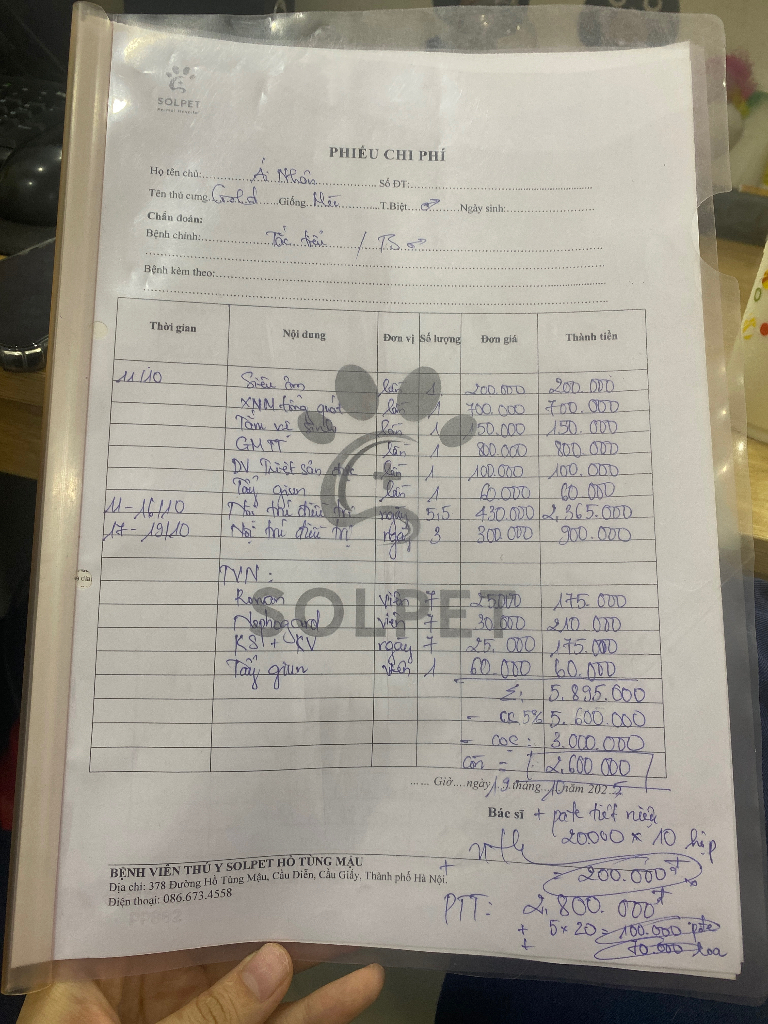 SOLPET
PHIẾU CHI PHÍ
Họ tên chủ: Ái Nhân Số ĐT:
Tên thú cưng: Gold Giống: Mèo T.Biệt: ♂ Ngày sinh:
Chẩn đoán:
Bệnh chính: Tắc tiểu / TS ♂
Bệnh kèm theo:
Thời gian Nội dung Đơn vị Số lượng Đơn giá Thành tiền
11/10 Siêu âm lần 1 200.000 200.000
XNM tổng quát lần 1 700.000 700.000
Tắm vệ sinh lần 1 150.000 150.000
GMTT lần 1 800.000 800.000
DV Triệt sản đực lần 1 100.000 100.000
Tẩy giun lần 1 60.000 60.000
11-16/10 Nội trú điều trị ngày 5,5 430.000 2,365.000
17-19/10 Nội trú điều trị ngày 3 300.000 900.000
TVN:
viên 7 25000 175.000
Nephogard viên 7 30.000 210.000
KS1 + KV ngày 7 25.000 175.000
Tẩy giun viên 1 60.000 60.000
Σ: 5.895.000
- CK 5% 5.600.000
- cọc: 3.000.000
Còn = 2,600.000
Giờ....ngày 19 tháng 10 năm 2025
Bác sĩ + pate tiết niệu
20000 × 10 hộp
= 200.000đ
BỆNH VIỆN THÚ Y SOLPET HỒ TÙNG MẬU
Địa chỉ: 378 Đường Hồ Tùng Mậu, Cầu Diễn, Cầu Giấy, Thành phố Hà Nội.
Điện thoại: 086.673.4558
PTT: 2,800.000đ
+ 5 × 20 = 100.000 pate
+ 70.000 loa
SOLPET